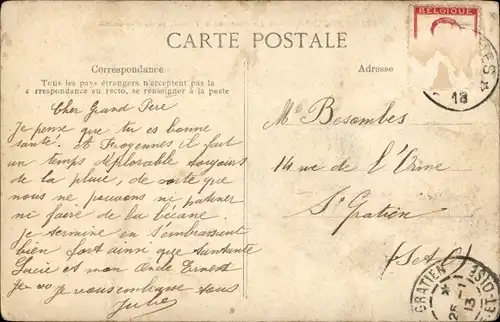 CARTE POSTALE
BELGIQUE
Correspondance
Adresse
Tous les pays étrangers n'acceptent pas la
correspondance au recto, se renseigner à la poste
Cher Grand Père
Je pense que tu es bonne
santé. et Froyennes il fait
un temps déplorable toujours
de la pluie, de sorte que
nous ne pouvons ne patiner
ni faire de la bécane.
Je termine en t'embrassant
bien fort ainsi que tantante
Lucie et mon Oncle Ernest
Je vous embrasse tous
Jules
Mr Besombes
14 rue de l'Orme
St Gratien
(S et O)
GRATIEN
25-1
13